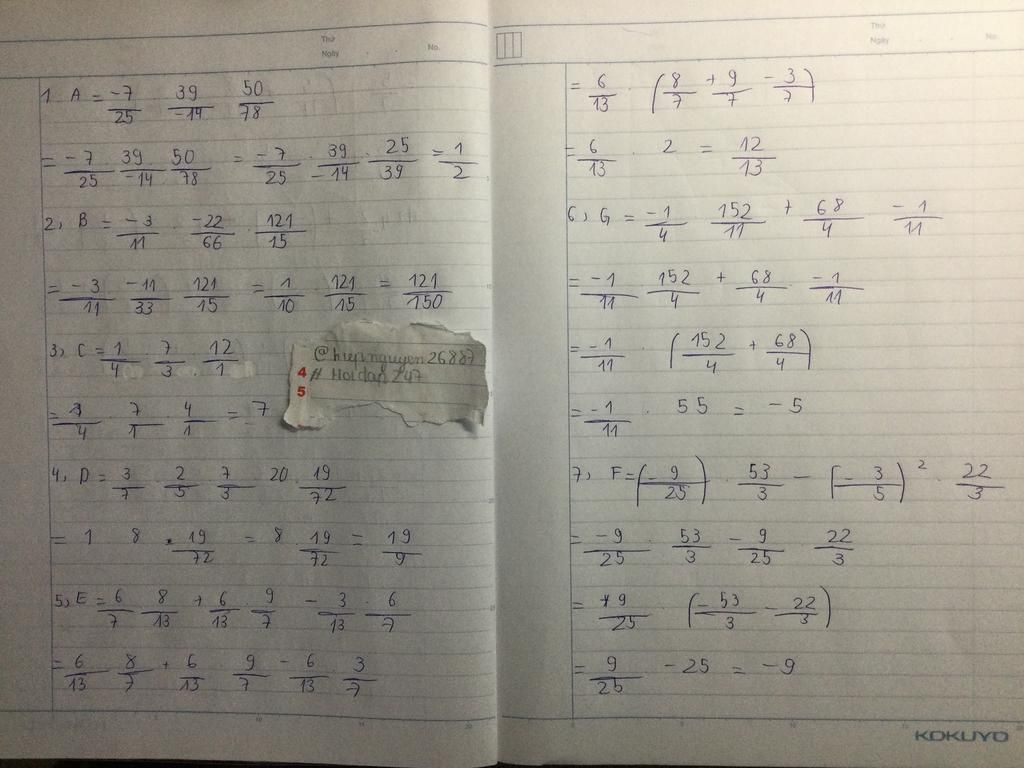 Thứ
Ngày No.
1 A = -7/25 39/-14 50/78
= -7/25 39/-14 50/78 = -7/25 . 39/-14 . 25/39 = 1/2
2, B = -3/11 . -22/66 . 121/15
= -3/11 -11/33 121/15 = 1/10 . 121/15 = 121/150
3, C = 1/4 . 7/3 . 12/1
= 1/4 7/1 4/1 = 7
4, D = 3/7 . 2/5 . 7/3 . 20 . 19/72
= 1 8 . 19/72 = 8 . 19/72 = 19/9
5, E = 6/7 8/13 + 6/13 9/7 - 3/13 . 6/7
= 6/13 8/7 + 6/13 9/7 - 6/13 . 3/7
@hiepnguyen26887
4 # Hoidap247
5
Thứ
Ngày No.
= 6/13 . (8/7 + 9/7 - 3/7)
= 6/13 . 2 = 12/13
6, G = -1/4 152/11 + 68/4 . -1/11
= -1/11 . 152/4 + 68/4 . -1/11
= -1/11 . (152/4 + 68/4)
= -1/11 . 55 = -5
7, F = (-9/25) . 53/3 - (-3/5)² . 22/3
= -9/25 . 53/3 - 9/25 22/3
= 9/25 . (-53/3 - 22/3)
= 9/25 -25 = -9
KOKUYO